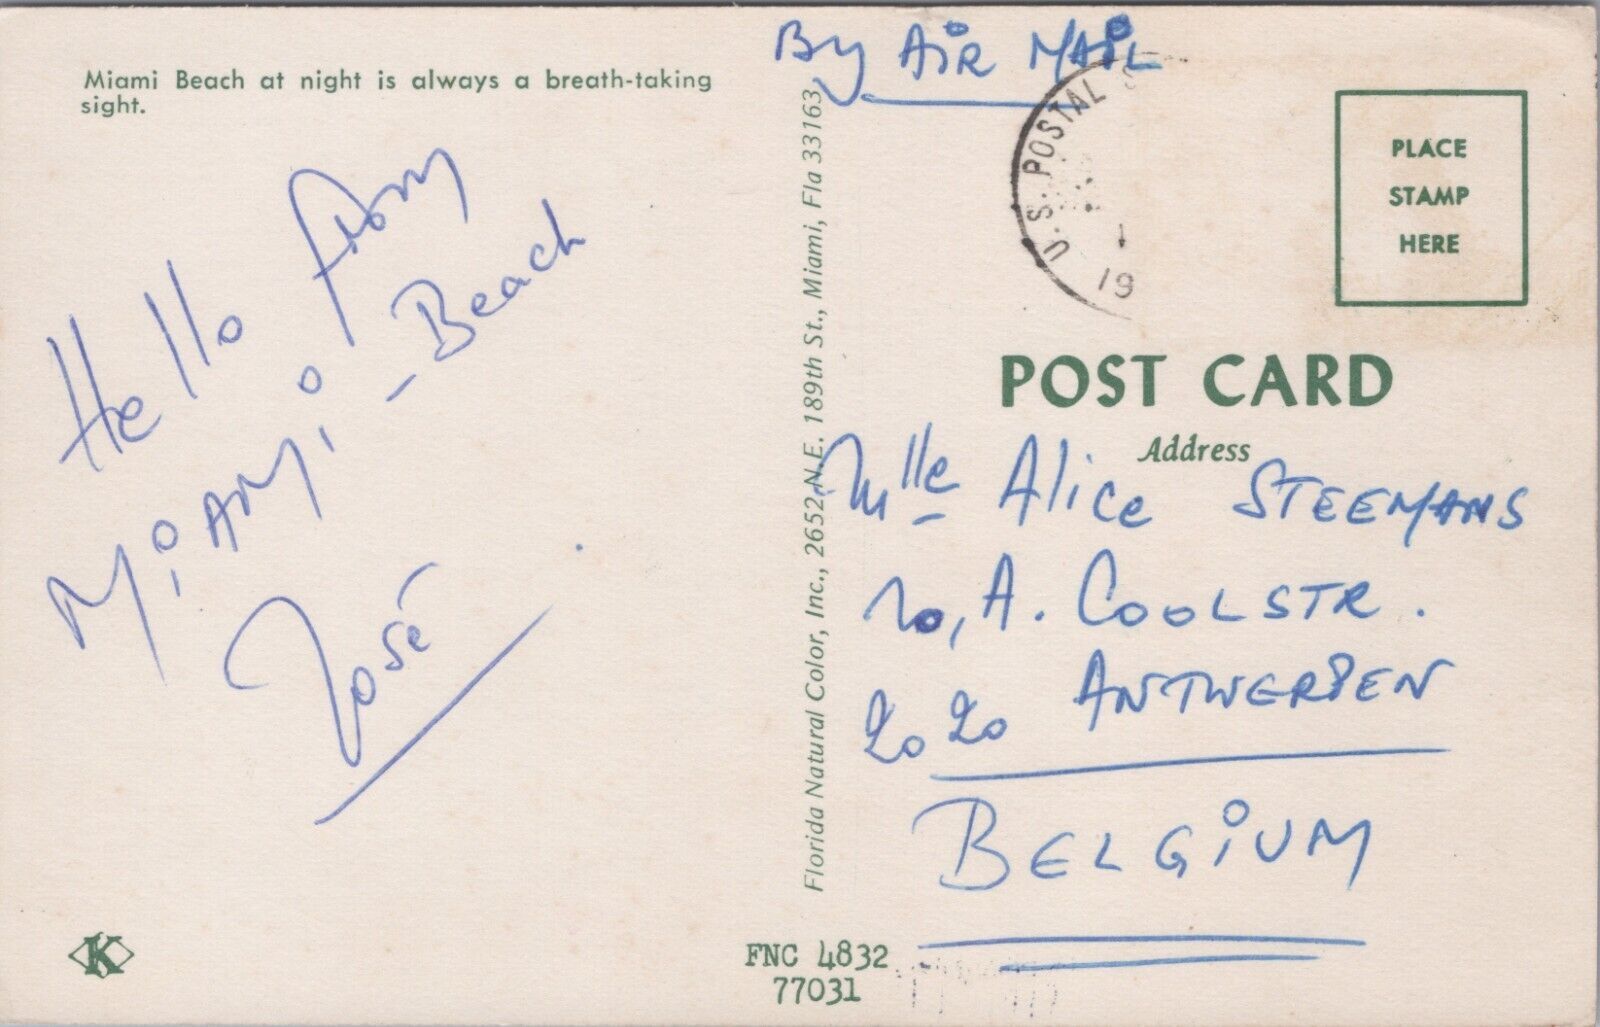 Miami Beach at night is always a breath-taking
sight.
Hello from
Miami - Beach
José
Florida Natural Color, Inc., 2652 N.E. 189th St., Miami, Fla 33163
By AiR MAiL
U.S. POSTAL S
19
PLACE
STAMP
HERE
POST CARD
Address
Mlle Alice STEEMANS
20, A. COOLSTR.
2020 ANTWERPEN
BELGiUM
K
FNC 4832
77031